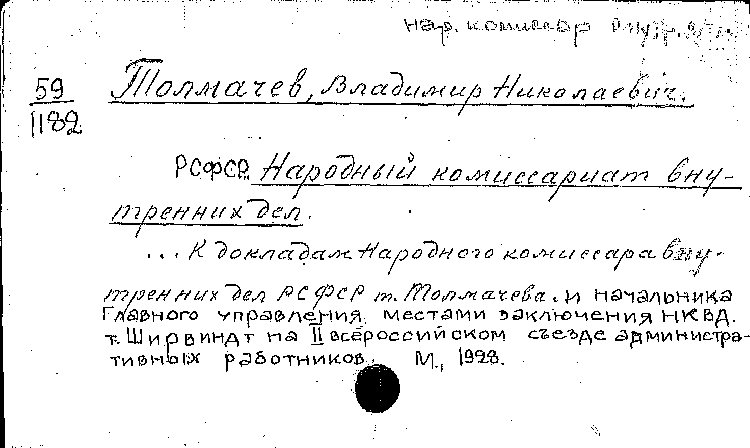 нар. комиссар внутр.
59
1182
Толмачев, Владимир Николаевич.
РСФСР. Народный комиссариат вну-
тренних дел.
... К докладам Народного комиссара вну-
тренних дел РСФСР т. Толмачева. и начальника
Главного управления местами заключения НКВД.
т. Ширвиндт на II всероссийском съезде администра-
тивных работников. М., 1928.